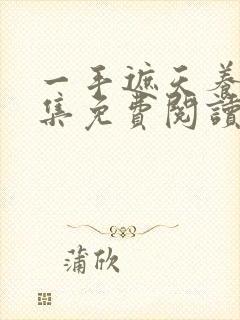 一手遮天養
集免費閱讀
蒲欣